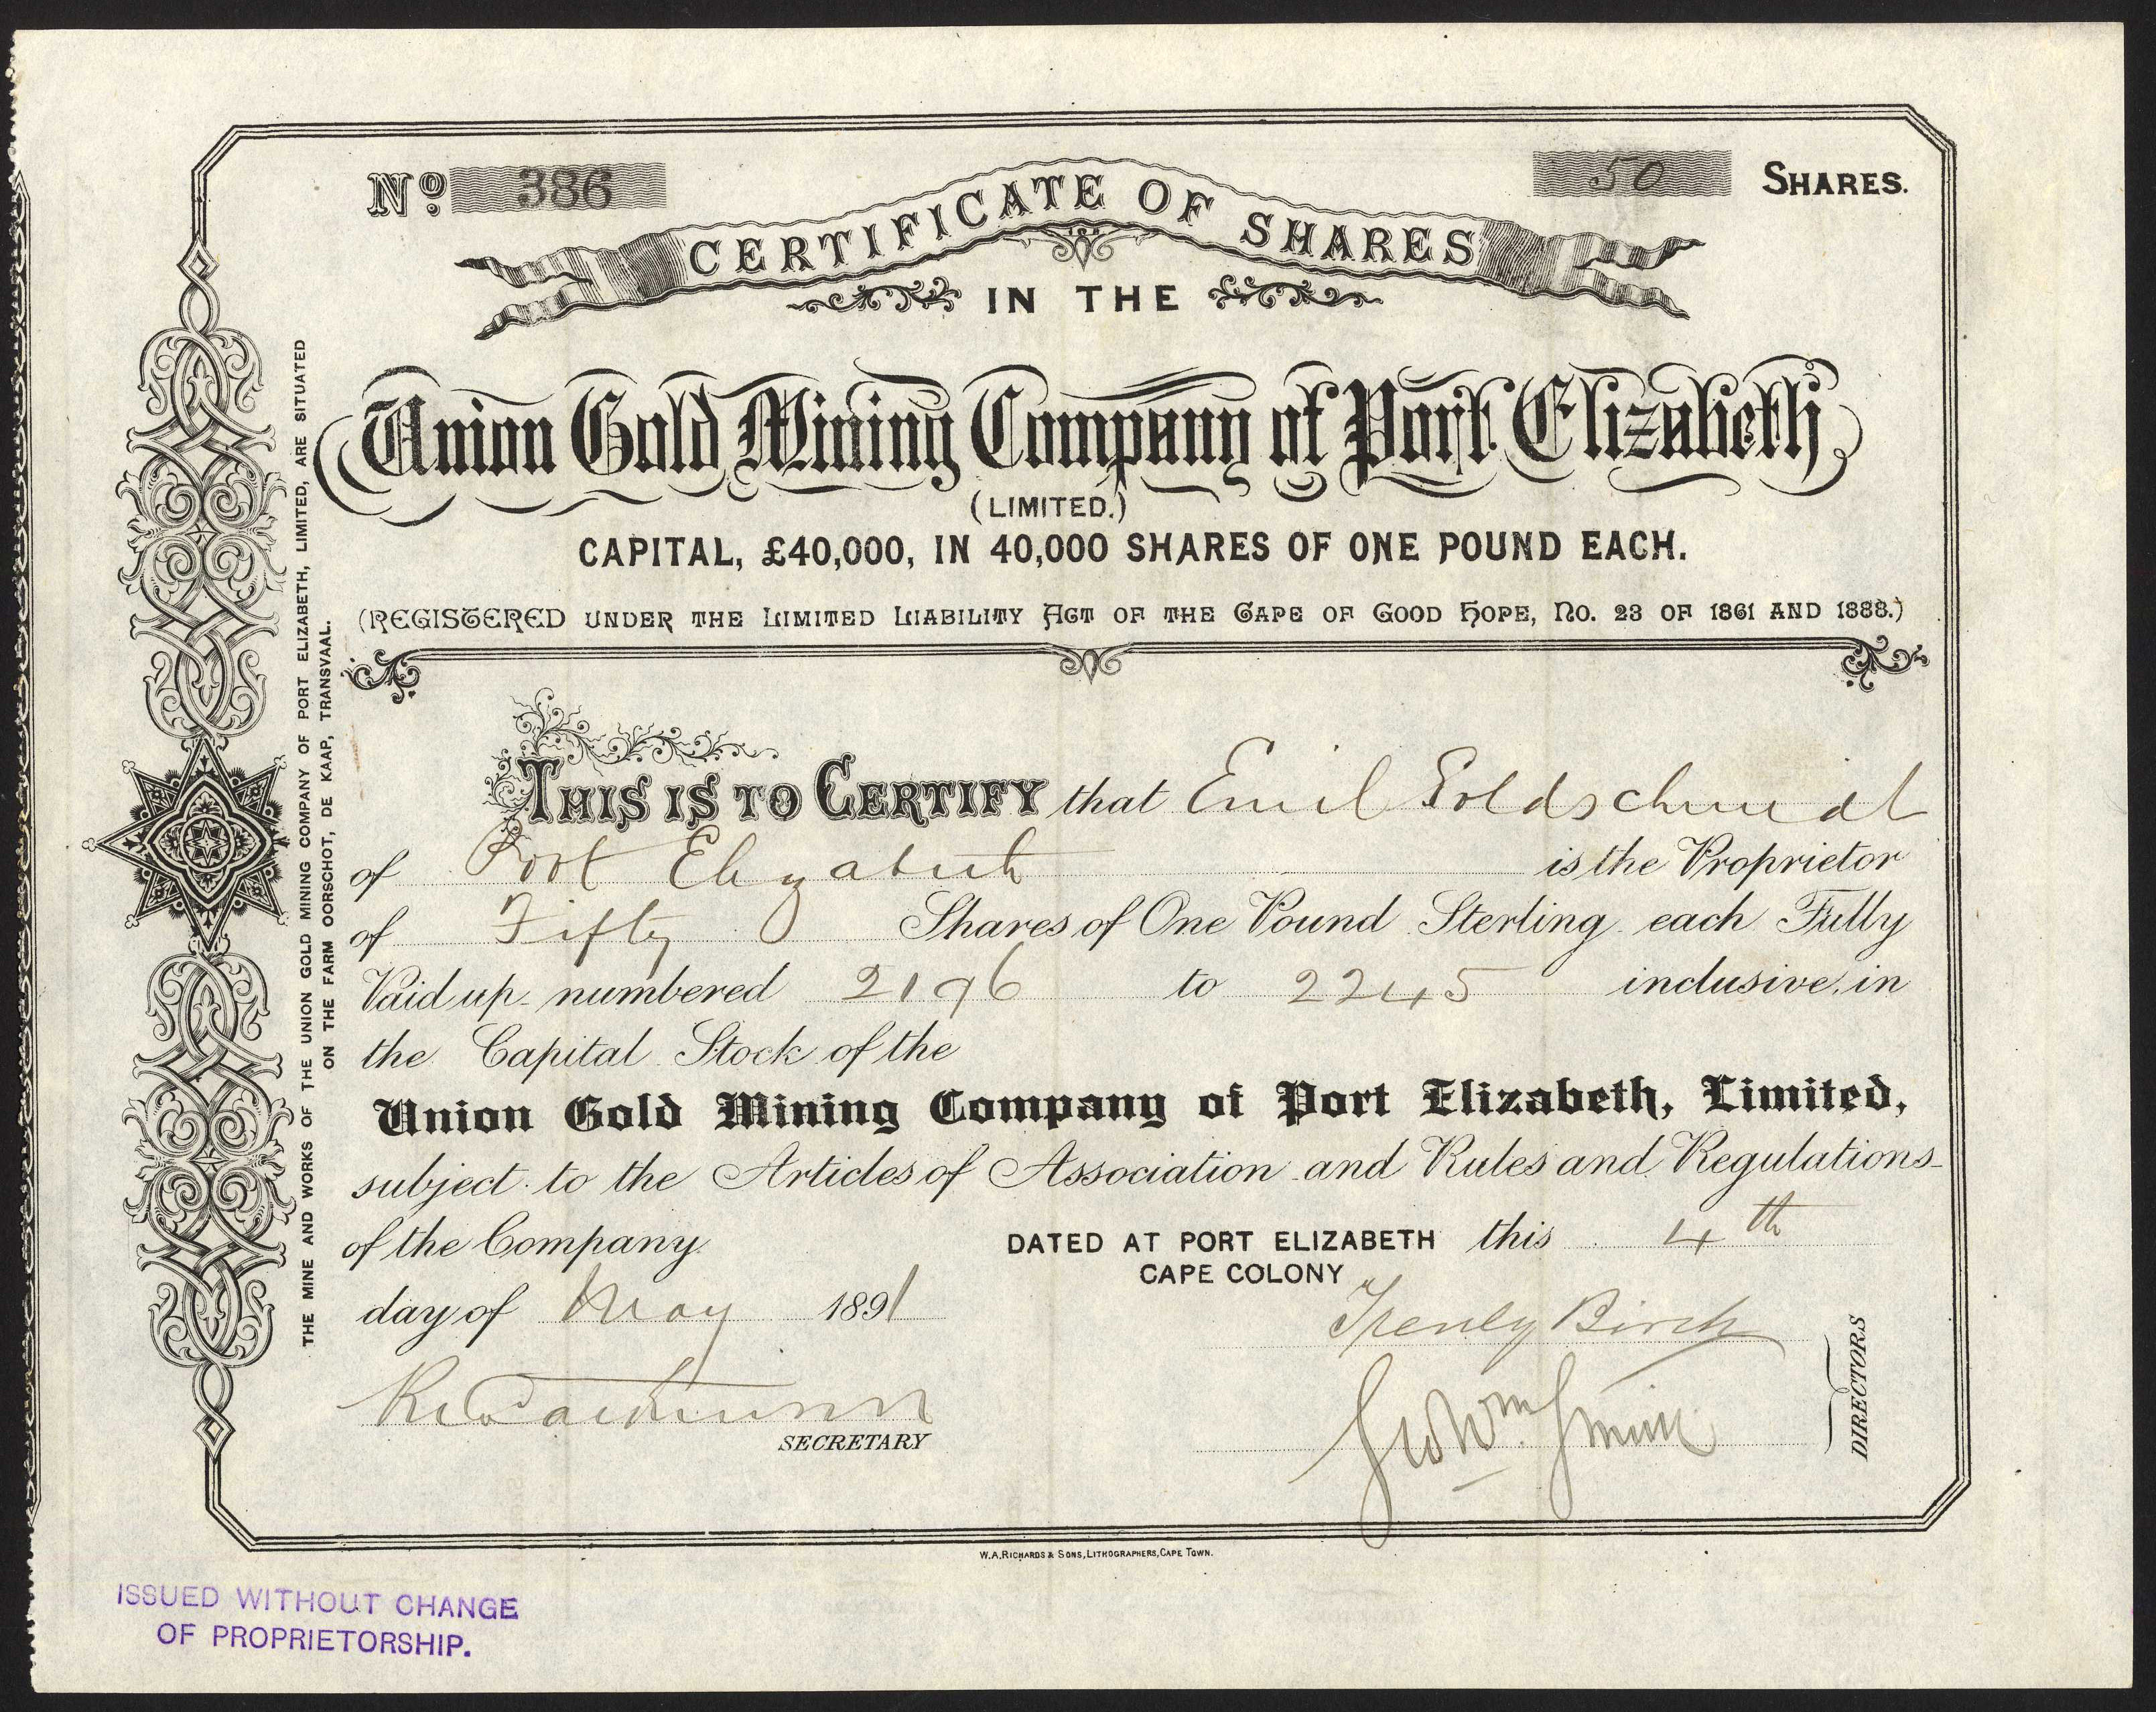 No. 386
50 SHARES.
CERTIFICATE OF SHARES
IN THE
Union Gold Mining Company of Port Elizabeth
(LIMITED.)
CAPITAL, £40,000, IN 40,000 SHARES OF ONE POUND EACH.
(REGISTERED UNDER THE LIMITED LIABILITY ACT OF THE CAPE OF GOOD HOPE, NO. 23 OF 1861 AND 1888.)
THIS IS TO CERTIFY that Emil Goldschmidt
of Port Elizabeth is the Proprietor
of Fifty Shares of One Pound Sterling each Fully
Paid up numbered 2196 to 2245 inclusive, in
the Capital Stock of the
Union Gold Mining Company of Port Elizabeth, Limited,
subject to the Articles of Association and Rules and Regulations
of the Company.
DATED AT PORT ELIZABETH this 4th
CAPE COLONY
day of May 1891
Henly Birch
Geo Wm Smith
DIRECTORS
SECRETARY
THE MINE AND WORKS OF THE UNION GOLD MINING COMPANY OF PORT ELIZABETH, LIMITED, ARE SITUATED
ON THE FARM OORSCHOT, DE KAAP, TRANSVAAL.
W.A. RICHARDS & SONS, LITHOGRAPHERS, CAPE TOWN.
ISSUED WITHOUT CHANGE
OF PROPRIETORSHIP.